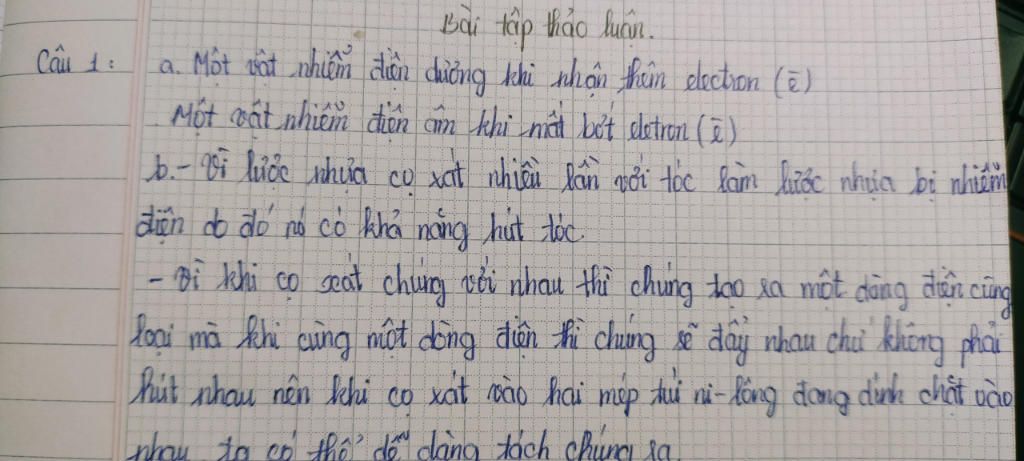 Bài tập thảo luận.
Câu 1: a. Một vật nhiễm điện dương khi nhận thêm electron (ē)
Một vật nhiễm điện âm khi mất bớt eletron (ē)
b. - Vì lược nhựa cọ xát nhiều lần với tóc làm lược nhựa bị nhiễm
điện do đó nó có khả năng hút tóc.
- Vì khi cọ xoát chúng với nhau thì chúng tạo ra một dòng điện cùng
loại mà khi cùng một dòng điện thì chúng sẽ đẩy nhau chứ không phải
hút nhau nên khi cọ xát vào hai mép túi ni-lông đang dính chặt vào
nhau ta có thể dễ dàng tách chúng ra.